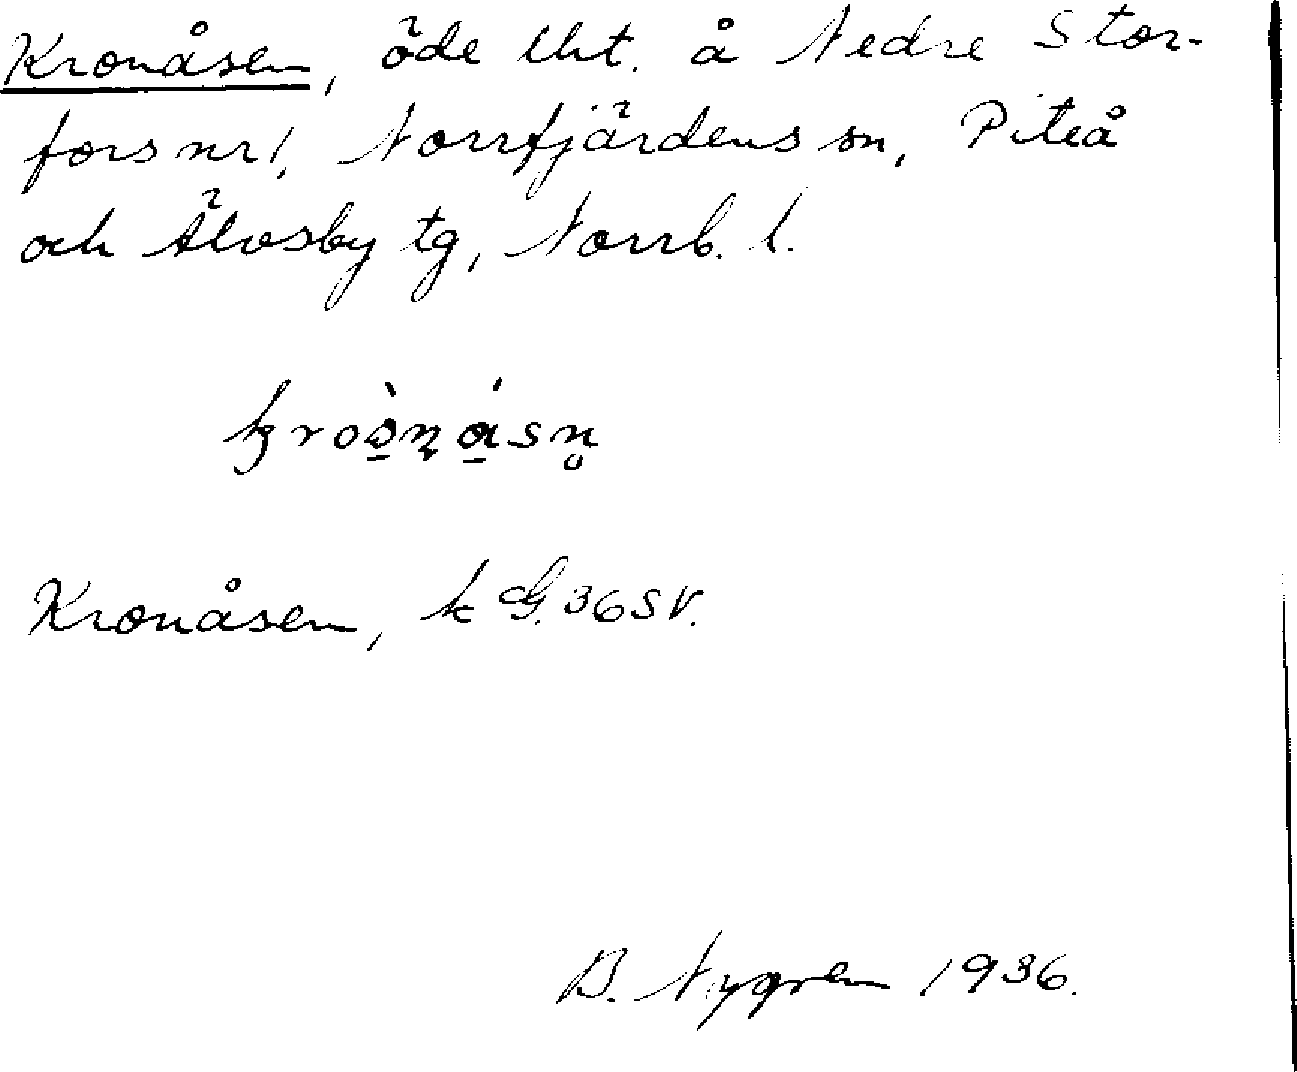 Kronåsen, öde lht. å Nedre Stor-
fors nr 1, Norrfjärdens sn, Piteå
och Älvsby tg, Norrb. l.
Kronåsen, k G. 36 SV.
B. Nygren 1936.